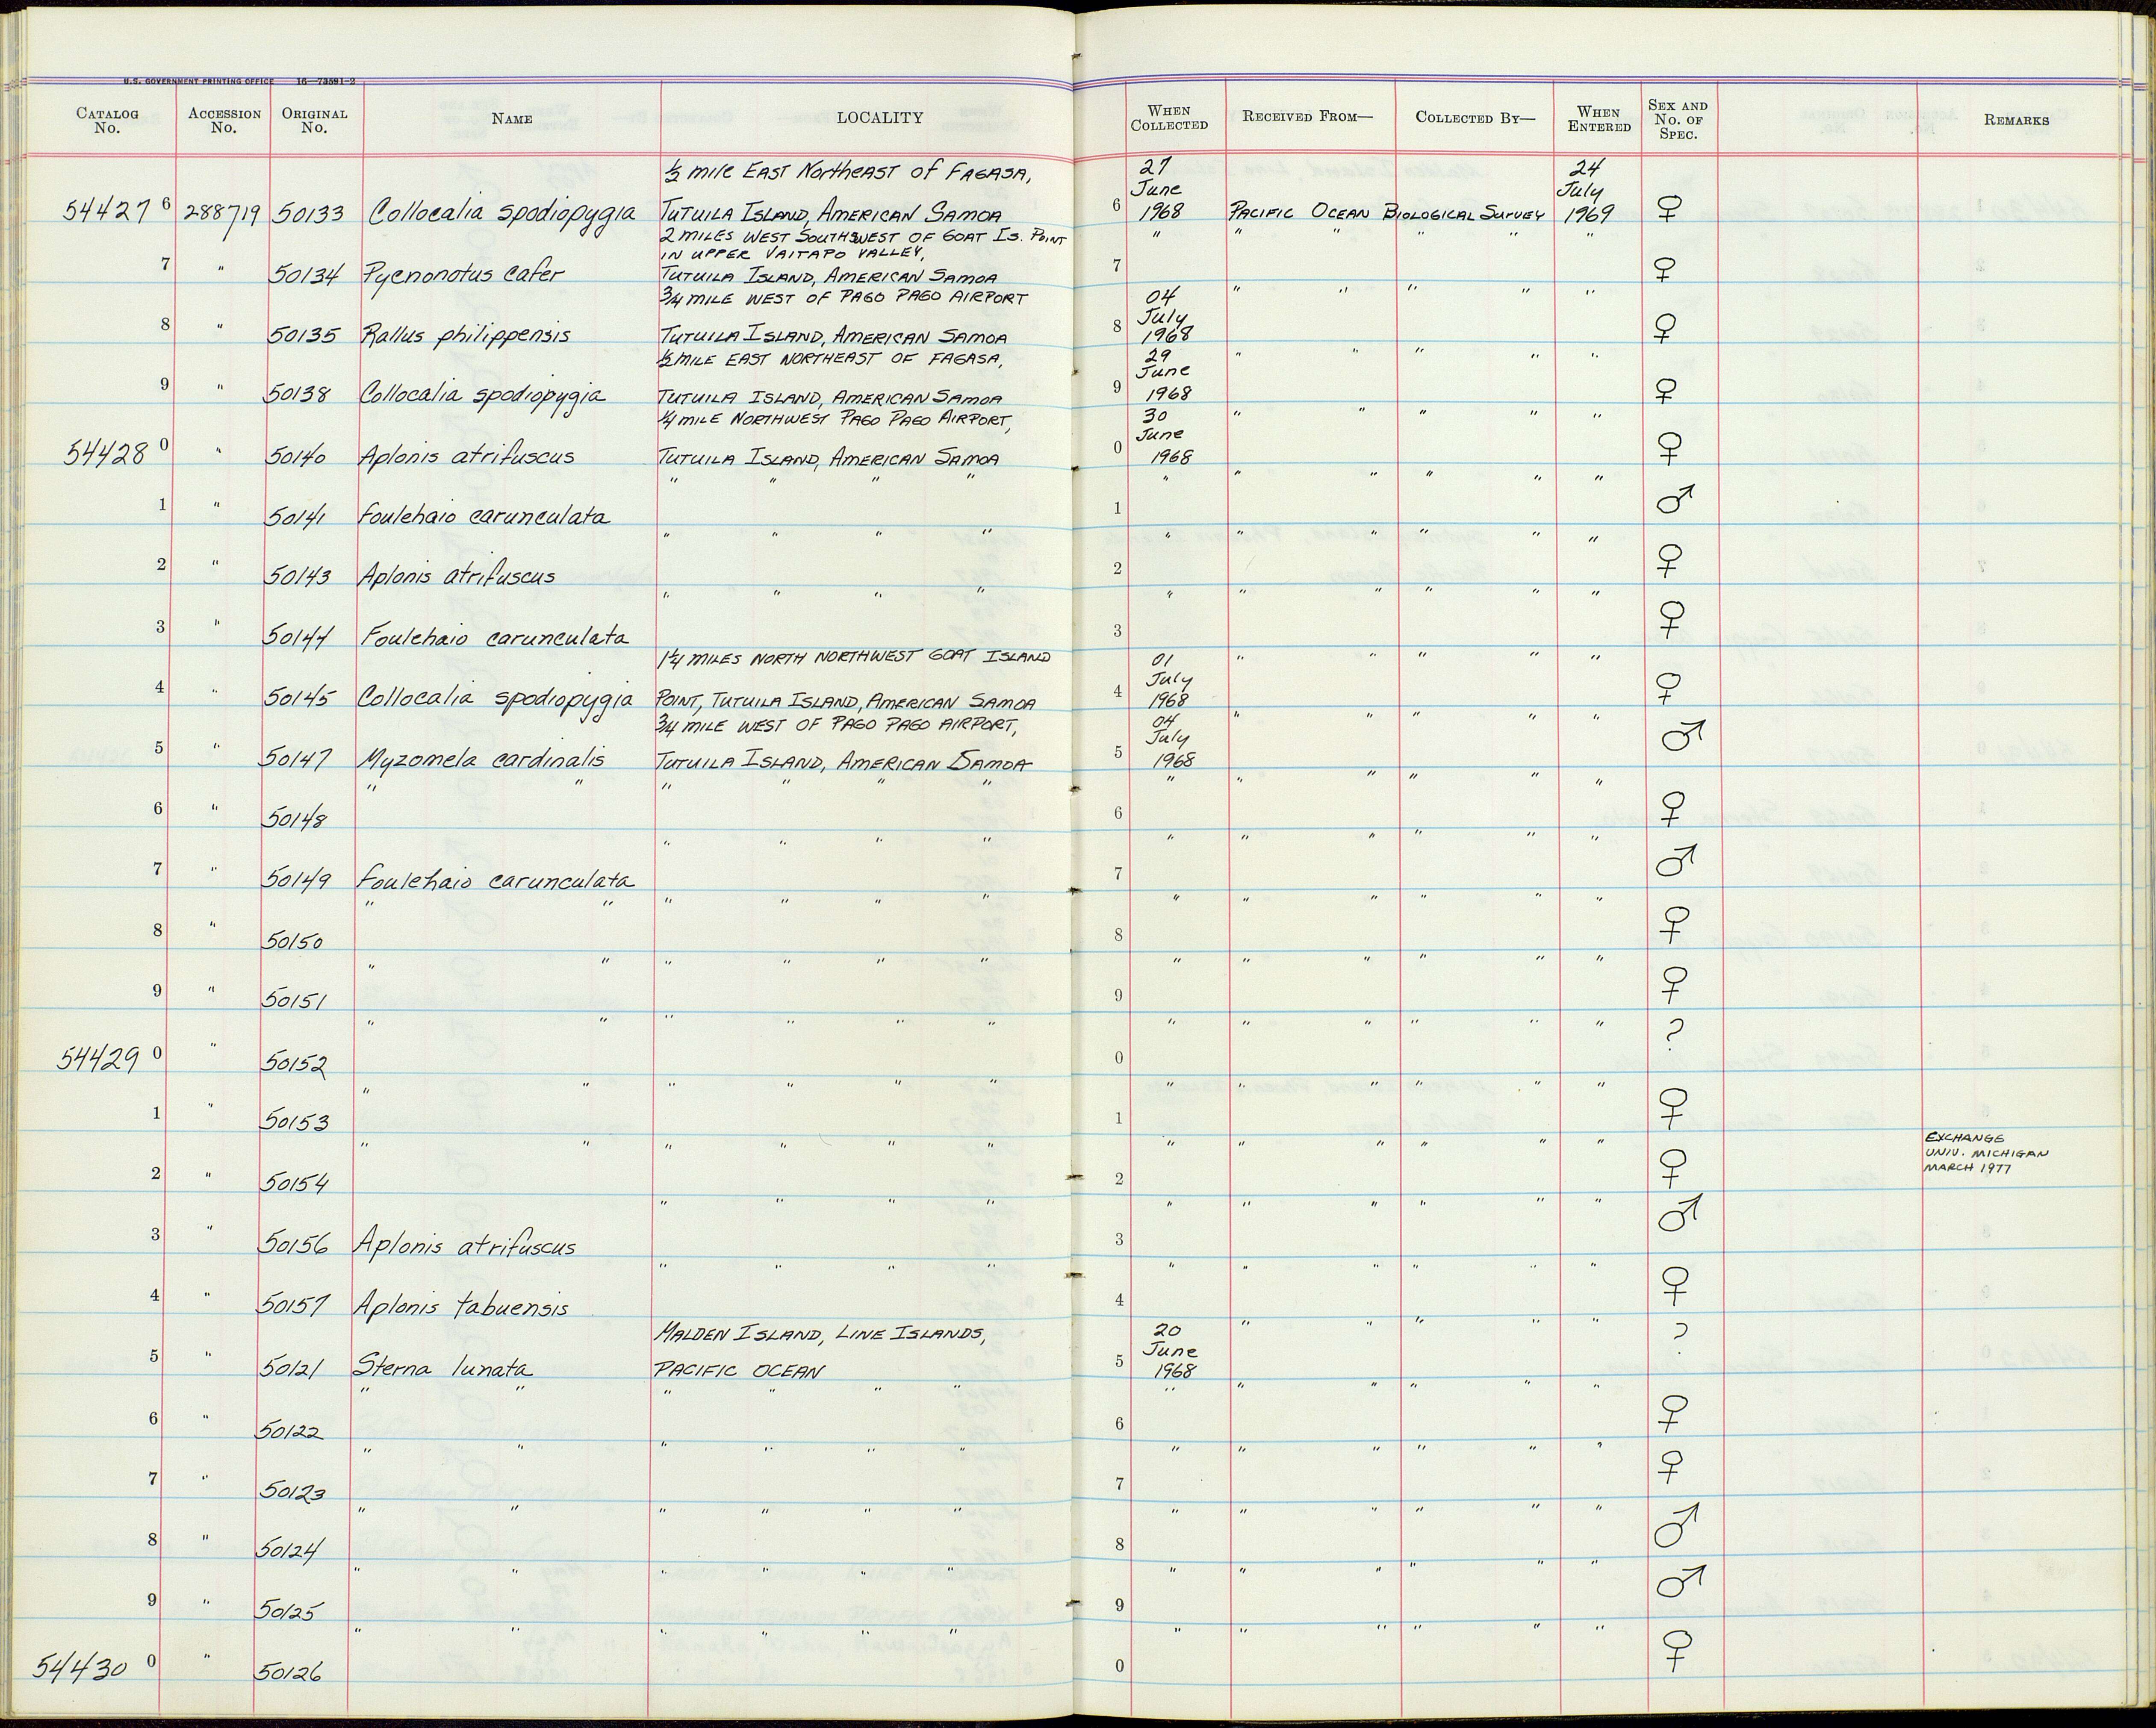 U.S. GOVERNMENT PRINTING OFFICE 16—73591-2
CATALOG No. ACCESSION No. ORIGINAL No. NAME LOCALITY WHEN COLLECTED RECEIVED FROM— COLLECTED BY— WHEN ENTERED SEX AND No. OF SPEC. REMARKS
½ mile EAST NortheAST of FAGASA, 27 June 24 July
54427 6 288719 50133 Collocalia spodiopygia TUTUILA ISLAND, AMERICAN SAMOA 6 1968 PACIFIC OCEAN BIOLOGICAL SURVEY 1969 ♀
2 MILES WEST SOUTHSWEST OF GOAT IS. POINT " " " " " "
IN UPPER VAITAPO VALLEY,
7 " 50134 Pycnonotus cafer TUTUILA ISLAND, AMERICAN SAMOA 7 ♀
¾ MILE WEST OF PAGO PAGO AIRPORT 04 July " " " " "
8 " 50135 Rallus philippensis TUTUILA ISLAND, AMERICAN SAMOA 8 1968 ♀
½ MILE EAST NORTHEAST OF FAGASA, 29 June " " " " "
9 " 50138 Collocalia spodiopygia TUTUILA ISLAND, AMERICAN SAMOA 9 1968 ♀
¼ MILE NORTHWEST PAGO PAGO AIRPORT, 30 June " " " " "
54428 0 " 50140 Aplonis atrifuscus TUTUILA ISLAND, AMERICAN SAMOA 0 1968 ♀
" " " " " " " " " "
1 " 50141 foulehaio carunculata 1 ♂
" " " " " " " " " "
2 " 50143 Aplonis atrifuscus 2 ♀
" " " " " " " " " "
3 " 50144 Foulehaio carunculata 3 ♀
1¼ MILES NORTH NORTHWEST GOAT ISLAND 01 July " " " " "
4 " 50145 Collocalia spodiopygia POINT, TUTUILA ISLAND, AMERICAN SAMOA 4 1968 ♀
¾ MILE WEST OF PAGO PAGO AIRPORT, 04 July " " " " "
5 " 50147 Myzomela cardinalis TUTUILA ISLAND, AMERICAN SAMOA 5 1968 ♂
" " " " " " " " " " " "
6 " 50148 6 ♀
" " " " " " " " " "
7 " 50149 foulehaio carunculata 7 ♂
" " " " " " " " " " " "
8 " 50150 8 ♀
" " " " " " " " " " " "
9 " 50151 9 ♀
" " " " " " " " " " " "
54429 0 " 50152 0 ?
" " " " " " " " " " " "
1 " 50153 1 ♀
" " " " " " " " " " " " EXCHANGE
UNIV. MICHIGAN
MARCH 1977
2 " 50154 2 ♀
" " " " " " " " " "
3 " 50156 Aplonis atrifuscus 3 ♂
" " " " " " " " " "
4 " 50157 Aplonis tabuensis 4 ♀
MALDEN ISLAND, LINE ISLANDS, 20 June " " " " "
5 " 50121 Sterna lunata PACIFIC OCEAN 5 1968 ?
" " " " " " " " " " " "
6 " 50122 6 ♀
" " " " " " " " " " " "
7 " 50123 7 ♀
" " " " " " " " " " " "
8 " 50124 8 ♂
" " " " " " " " " " " "
9 " 50125 9 ♂
" " " " " " " " " " " "
54430 0 " 50126 0 ♀